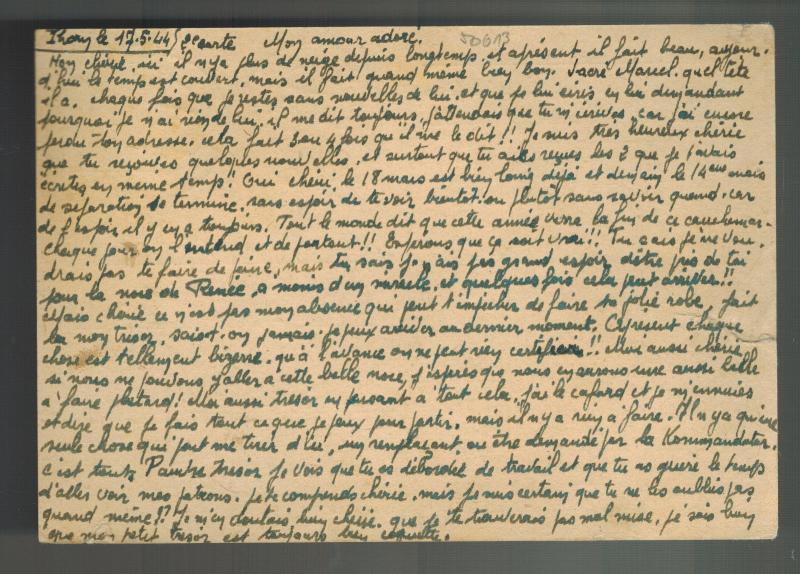 le 17.5.44 2e carte Mon amour adoré. 50613
Mon chérie, ici il n'y a plus de neige depuis longtemps et aprésent il fait beau, aujour-
d'hui le temps est couvert, mais il fait quand meme bien bon. Sacré Marcel quel tete
il a. chaque fois que je restes sans nouvelles de lui et que je lui ecris en lui demandant
pourquoi je n'ai rien de lui, il me dit toujours, j'attendais que tu m'écrives, car j'ai encore
perdu ton adresse. cela fait 3 ou 4 fois que il me le dit!! Je suis très heureux chérie
que tu reçoives quelques nouvelles, et surtout que tu aies reçues les 2 que j'avais
écrites en meme temps! Oui chéri, le 18 mars est bien loin déjà et demain le 14eme mois
de separation se termine, sans espoir de te voir bientot, ou plutôt sans savoir quand. car
de l'espoir il y en a toujours. Tout le monde dit que cette année verra la fin de ce cauchemar.
chaque jour on l'entend et de partout!! Esperons que ça soit vrai!!! Tu sais je ne vou-
drais pas te faire de peine, mais tu sais je n'ais pas grand espoir d'être près de toi
pour la noce de Renée, a moins d'un miracle, et quelques fois cela peut arriver!!
mais chérie ce n'est pas mon absence qui peut t'empecher de faire ta jolie robe, fait
la mon trésor, sais-t-on jamais. je peux arriver au dernier moment. Apresent chaque
chose est tellement bizarre. qu'à l'avance on ne peut rien certifier!! Moi aussi chérie,
si nous ne pouvons y aller a cette belle noce, j'espères que nous en aurons une aussi belle
a faire plutard! Moi aussi tresor en pensant a tout cela, j'ai le cafard et je m'ennuies
et dire que je fais tout ce que je peux pour partir, mais il n'y a rien a faire. Il n'y a qu'une
seule chose qui peut me tirer d'ici, un remplaçant, ou être demandé par la Kommandatur.
c'est tout. Pauvre tresor je vois que tu es débordée de travail et que tu as guere le temps
d'aller voir mes patrons. je te comprends chérie. mais je suis certain que tu ne les oublies pas
quand même!? Je m'en doutais bien chérie, que je te trouverais pas mal mise, je sais bien
que mon petit tresor est toujours bien coquette.